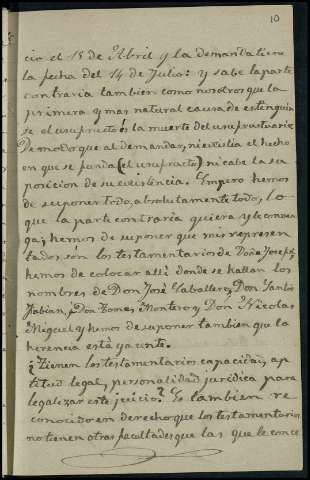 10
cio el 15 de Abril y la demanda tiene
la fecha del 14 de Julio: y sabe la parte
contraria tambien como nosotros que la
primera y mas natural causa de estinguir
se el usufructo es la muerte del usufructuario
De modo que al demandar, ni existia el hecho
en que se funda (el usufructo) ni cabe la su
posicion de su existencia. Empero hemos
de suponer todo, absolutamente todo, lo
que la parte contraria quiera y le conven
ga; hemos de suponer que mis represen
tados son los testamentarios de Doña Josefa;
hemos de colocar alli donde se hallan los
nombres de Don José Caballero, Don Santos
Fabian, Don Tomas Montero y Don Nicolas
Miguel y hemos de suponer tambien que la
herencia está yacente.
¿Tienen los testamentarios capacidad, ap
titud legal, personalidad juridica para
legalizar este juicio? Es tambien re
conocido en derecho que los testamentarios
no tienen otras facultades que las que le conce